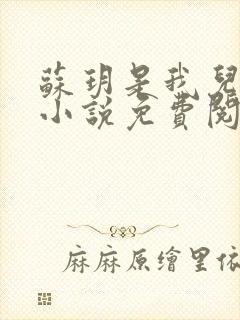 蘇玥是我兒
小說免費閱
麻麻原繪里依